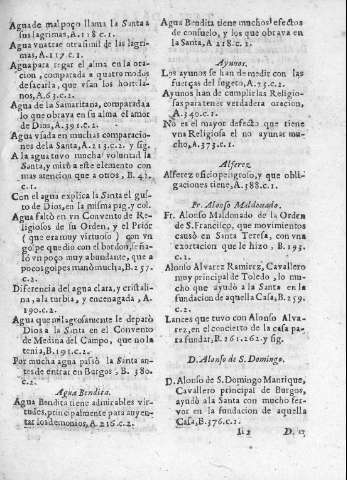 Agua de mal poço llama la Santa a
sus lagrimas, A.118 c.1.
Agua vna trae otra simil de las lagri-
mas, A.117 c.1.
Agua para regar el alma en la ora
cion, comparada a quatro modos
de sacarla, que vían los hortela-
nos, A.63.c.2.
Agua de la Samaritana, comparada a
lo que obrava en su alma el amor
de Dios, A.391.c.2.
Agua vsada en muchas comparacio-
nes de la Santa, A.213.c.2. y sig.
A la agua tuvo mucha voluntad la
Santa, y miró a este elemento con
mas atencion que a otros, B.41.
c.1.
Con el agua explica la Santa el gus-
to de Dios, en la misma pag. y col.
Agua faltò en vn Convento de Re-
ligiosos de su Orden, y el Prior
(que era muy virtuoso) con vn
golpe que dio con el bordon, seña-
ló vn poço muy abundante, que a
pocos golpes manò mucha, B.257.
c.2.
Diferencia del agua clara, y cristali-
na, a la turbia, y encenagada, A.
190.c.2.
Agua que milagrosamente le deparò
Dios a la Santa en el Convento
de Medina del Campo, que no la
tenia, B.191.c.2.
Por mucha agua passò la Santa an-
tes de entrar en Burgos, B. 380.
c.2.
Agua Bendita.
Agua Bendita tiene admirables vir-
tudes, principalmente para auyen-
tar los demonios, A.216.c.2.
Agua Bendita tiene muchos efectos
de consuelo, y los que obrava en
la Santa, A 218.c.1.
Ayunos.
Los ayunos se han de medir con las
fuerças del sugeto, A.73.c.2.
Ayunos han de cumplir las Religio-
sas para tener verdadera oracion,
A.340.c.1.
No es el mayor defecto que tiene
vna Religiosa el no ayunar mu-
cho, A.373.c.1.
Alferez.
Alferez oficio peligroso, y que obli-
gaciones tiene, A.388.c.1.
Fr. Alonso Maldonado.
Fr. Alonso Maldonado de la Orden
de S. Francisco, que movimientos
causò en Santa Teresa, con vna
exortacion que le hizo, B.193.
c.1.
Alonso Alvarez Ramirez, Cavallero
muy principal de Toledo, lo mu-
cho que ayudò a la Santa en la
fundacion de aquella Casa, B.259.
c.2.
Lances que tuvo con Alonso Alva-
rez, en el concierto de la casa pa-
ra fundar, B.261.262.y sig.
D. Alonso de S. Domingo.
D. Alonso de S. Domingo Manrique,
Cavallero principal de Burgos,
ayudò a la Santa con mucho fer-
vor en la fundacion de aquella
Casa, B.376.c.1.
Ii 2